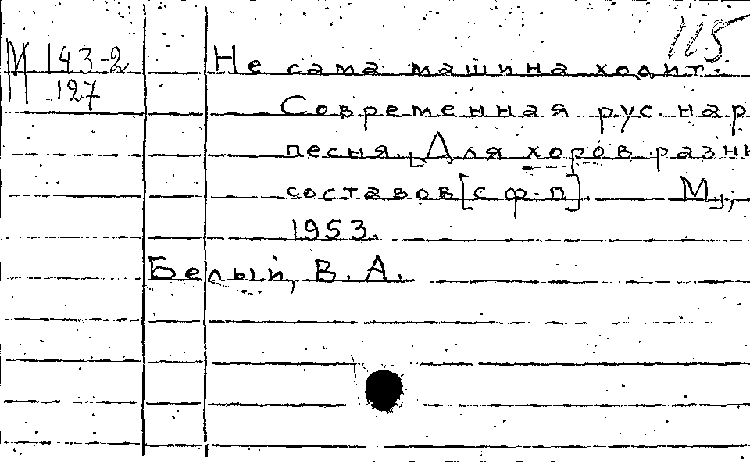 115
М 143-2
127
Не сама машина ходит.
Современная рус. нар
песня. Для хоров разн
составов [с ф-п]. М.,
1953.
Белый, В. А.